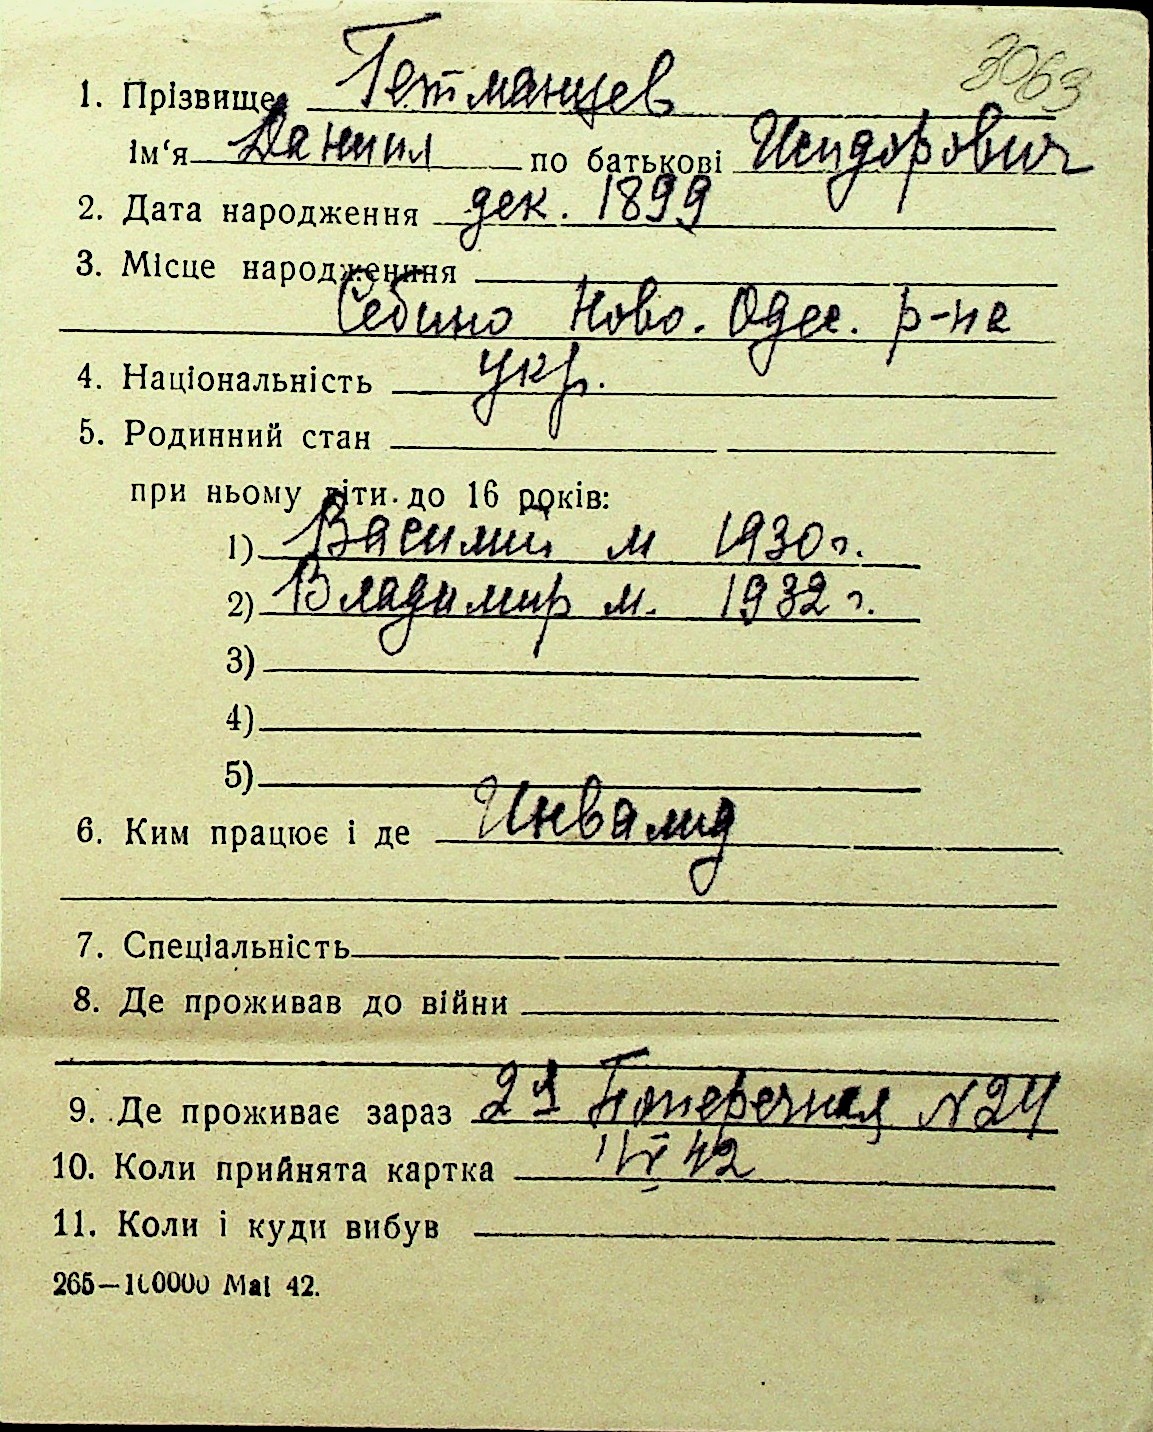 3063
1. Прізвище Гетманцев
ім‘я Даниил по батькові Исидорович
2. Дата народження дек. 1899
3. Місце народження
Себино Ново. Одес. р-на
4. Національність укр.
5. Родинний стан
при ньому діти до 16 років:
1) Василий м 1930 г.
2) Владимир м. 1932 г.
3)
4)
5)
6. Ким працює і де Инвалид
7. Спеціальність
8. Де проживав до війни
9. Де проживає зараз 2я Поперечная N 24
10. Коли прийнята картка 42
11. Коли і куди вибув
265—100000 Mai 42.